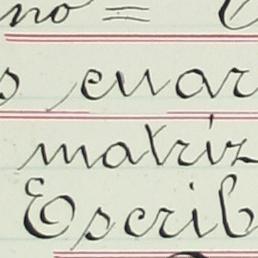 no =
s cuar
matriz
Escrib